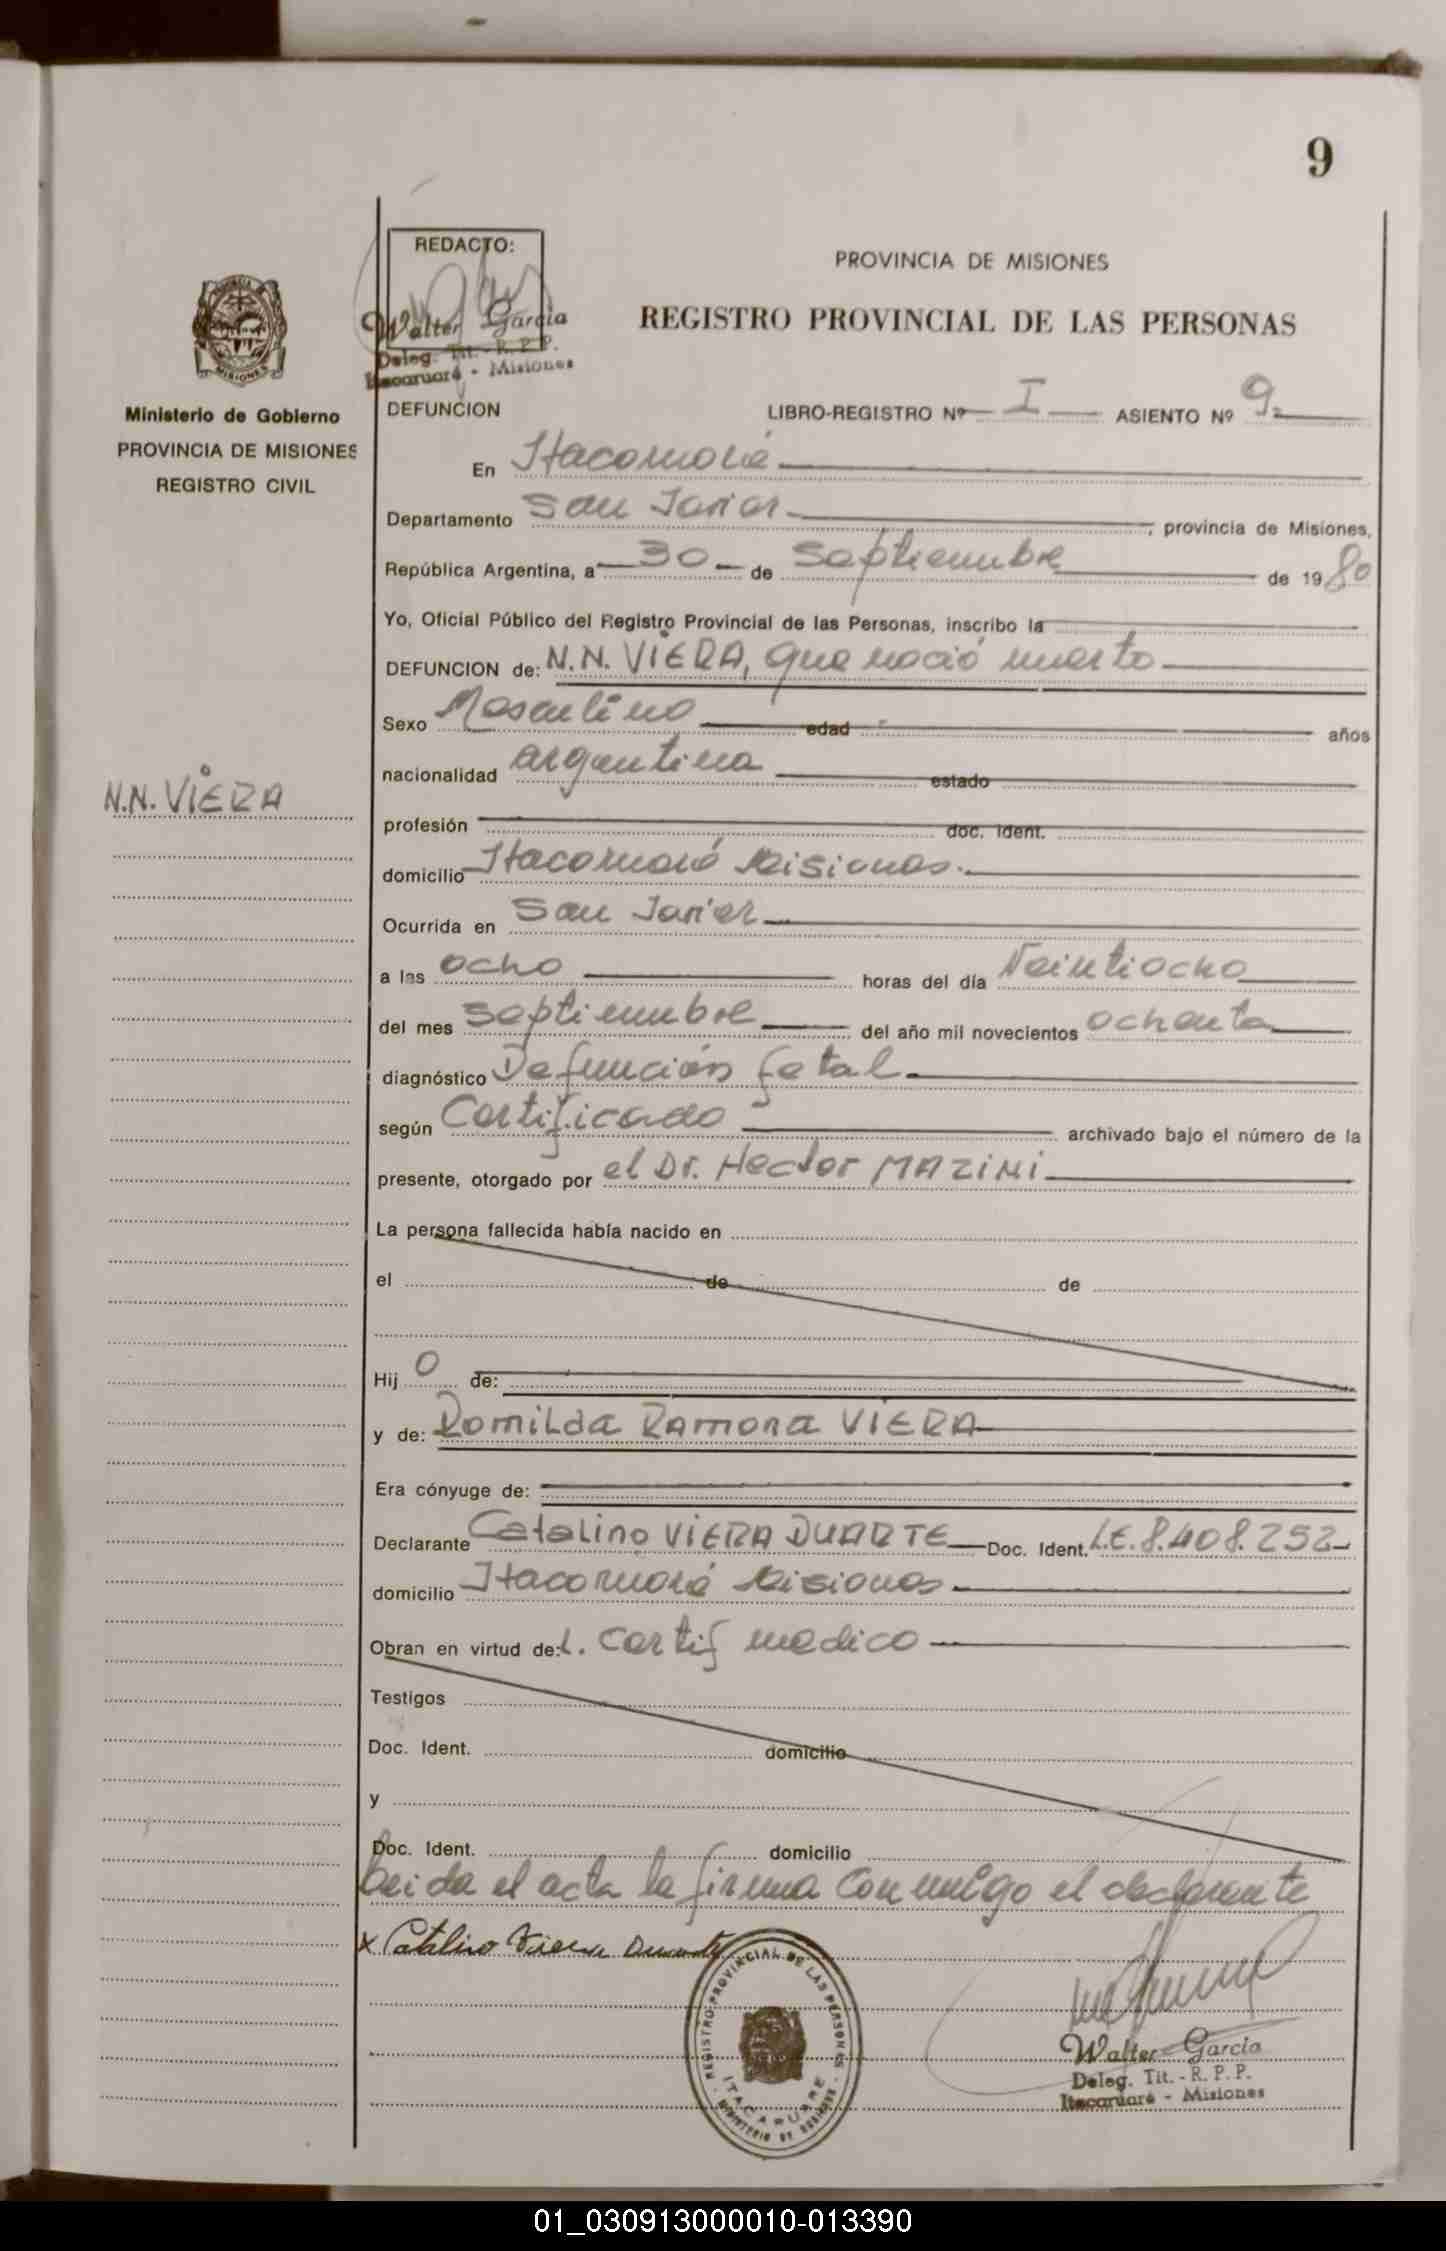 9
REDACTO:
Walter García
Deleg. Tit. - R. P. P.
Itacaruaré - Misiones
PROVINCIA DE MISIONES
REGISTRO PROVINCIAL DE LAS PERSONAS
MISIONES
Ministerio de Gobierno
PROVINCIA DE MISIONES
REGISTRO CIVIL
DEFUNCION LIBRO-REGISTRO Nº I ASIENTO Nº 9
En Itacaruaré
Departamento San Javier, provincia de Misiones,
República Argentina, a 30 de septiembre de 1980
Yo, Oficial Público del Registro Provincial de las Personas, inscribo la
DEFUNCION de: N.N. VIERA, que nació muerto
Sexo Masculino edad años
nacionalidad argentina estado
N.N. VIERA
profesión doc. ident.
domicilio Itacaruaré Misiones.
Ocurrida en San Javier
a las ocho horas del día Veintiocho
del mes septiembre del año mil novecientos ochenta
diagnóstico Defunción fetal
según Certificado archivado bajo el número de la
presente, otorgado por el Dr. Hector MAZINI
La persona fallecida había nacido en
el de de
Hij o de:
y de: Romilda Ramona VIERA
Era cónyuge de:
Declarante Catalino VIERA DUARTE Doc. Ident. L.E. 8.408.252
domicilio Itacaruaré Misiones
Obran en virtud de: L. Certif medico
Testigos
Doc. Ident. domicilio
y
Doc. Ident. domicilio
Leida el acta la firma conmigo el declarante
x Catalino Viera Duarte
REGISTRO PROVINCIAL DE LAS PERSONAS
ITACARUARE
MINISTERIO DE GOBIERNO
Walter García
Deleg. Tit. - R. P. P.
Itacaruaré - Misiones
01_030913000010-013390